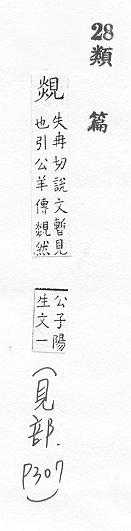 28類篇
覢
失冉切說文暫見
也引公羊傳覢然
公子陽
生文一
(見部.
P307)